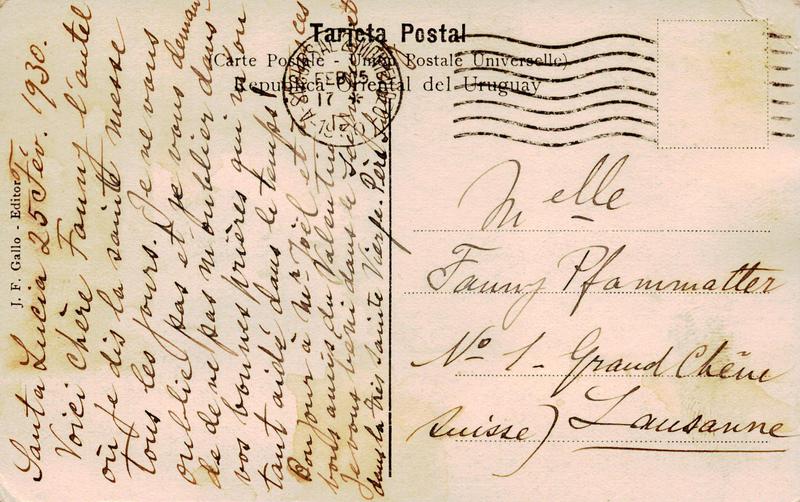 Tarjeta Postal
(Carte Postale - Union Postale Universelle)
República Oriental del Uruguay
FEB 25
17
1930
J. F. Gallo - Editor
Santa Lucia 25 Fév. 1930.
Voici chère Fanny l'autel
où je dis la sainte messe
tous les jours. Je ne vous
oublie pas et je vous deman
de de ne pas m'oublier dans
vos bonnes prières qui m'on
tant aidé dans le temps!
Bonjour à Mr Joël et à ces
bons amis du Valentin
Je vous bénis dans le
dans la très sainte Vierge. Père
Melle
Fanny Pfammatter
No 1 - Grand Chêne
Suisse) Lausanne